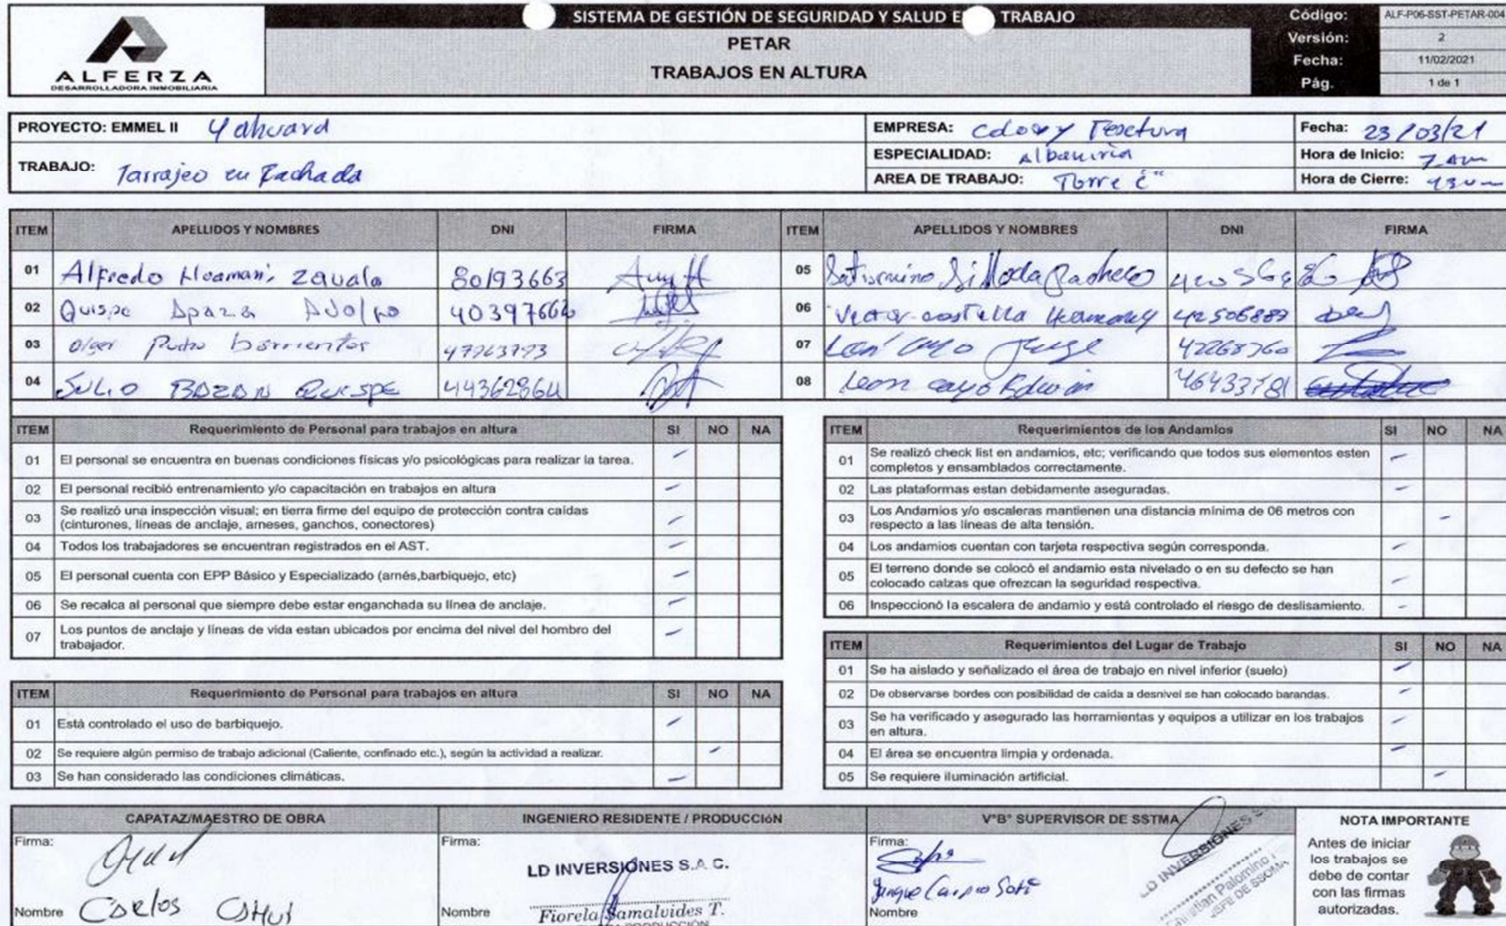 ALFERZA
DESARROLLADORA INMOBILIARIA
SISTEMA DE GESTIÓN DE SEGURIDAD Y SALUD E TRABAJO
PETAR
TRABAJOS EN ALTURA
Código: ALF-P06-SST-PETAR-004
Versión: 2
Fecha: 11/02/2021
Pág. 1 de 1
PROYECTO: EMMEL II Yahuara
TRABAJO: Tarrajeo en Fachada
EMPRESA: Color y Textura
ESPECIALIDAD: Albanireia
AREA DE TRABAJO: Torre C"
Fecha: 23/03/21
Hora de Inicio: 7 Am
Hora de Cierre:
ITEM APELLIDOS Y NOMBRES DNI FIRMA
01 Alfredo Huamani Zavala 80193663
02 Quispe Apaza Adolfo 40397662
03 Olger Pudro barrientos 47263793
04 JULIO BAZAN QUISPE 44362864
ITEM APELLIDOS Y NOMBRES DNI FIRMA
05 Saturnino Pacheco
06 Victor 42506889
07 Jorge 42268760
08 Leon cayo Edwin 46433781
ITEM Requerimiento de Personal para trabajos en altura SI NO NA
01 El personal se encuentra en buenas condiciones físicas y/o psicológicas para realizar la tarea.
02 El personal recibió entrenamiento y/o capacitación en trabajos en altura
03 Se realizó una inspección visual; en tierra firme del equipo de protección contra caídas
(cinturones, líneas de anclaje, arneses, ganchos, conectores)
04 Todos los trabajadores se encuentran registrados en el AST.
05 El personal cuenta con EPP Básico y Especializado (arnés,barbiquejo, etc)
06 Se recalca al personal que siempre debe estar enganchada su línea de anclaje.
07 Los puntos de anclaje y líneas de vida estan ubicados por encima del nivel del hombro del
trabajador.
ITEM Requerimiento de Personal para trabajos en altura SI NO NA
01 Está controlado el uso de barbiquejo.
02 Se requiere algún permiso de trabajo adicional (Caliente, confinado etc.), según la actividad a realizar.
03 Se han considerado las condiciones climáticas.
ITEM Requerimientos de los Andamios SI NO NA
01 Se realizó check list en andamios, etc; verificando que todos sus elementos esten
completos y ensamblados correctamente.
02 Las plataformas estan debidamente aseguradas.
03 Los Andamios y/o escaleras mantienen una distancia mínima de 06 metros con
respecto a las líneas de alta tensión.
04 Los andamios cuentan con tarjeta respectiva según corresponda.
05 El terreno donde se colocó el andamio esta nivelado o en su defecto se han
colocado calzas que ofrezcan la seguridad respectiva.
06 Inspeccionó la escalera de andamio y está controlado el riesgo de deslisamiento.
ITEM Requerimientos del Lugar de Trabajo SI NO NA
01 Se ha aislado y señalizado el área de trabajo en nivel inferior (suelo)
02 De observarse bordes con posibilidad de caida a desnivel se han colocado barandas.
03 Se ha verificado y asegurado las herramientas y equipos a utilizar en los trabajos
en altura.
04 El área se encuentra limpia y ordenada.
05 Se requiere iluminación artificial.
CAPATAZ/MAESTRO DE OBRA
Firma:
Nombre Carlos
INGENIERO RESIDENTE / PRODUCCIóN
Firma:
LD INVERSIONES S.A.C.
Nombre Fiorela Samalvides T.
PRODUCCIÓN
V°B° SUPERVISOR DE SSTMA
Firma:
Nombre
LD INVERSIONES
Palomino
JEFE DE SSOMA
NOTA IMPORTANTE
Antes de iniciar
los trabajos se
debe de contar
con las firmas
autorizadas.